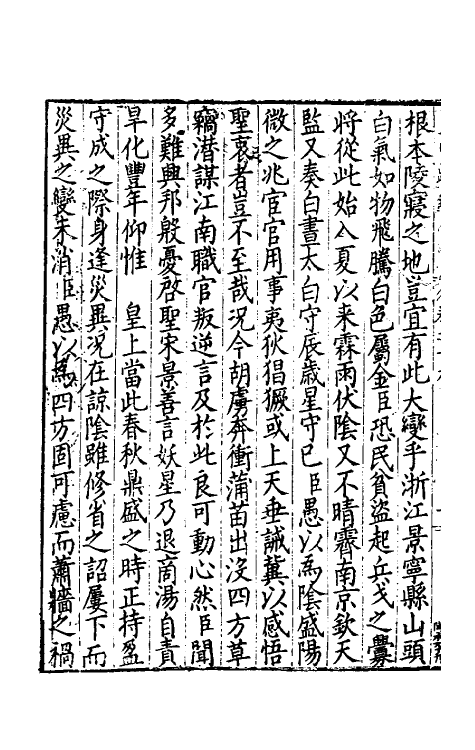 根本陵寢之地豈宜有此大變乎浙江景寧縣山頭
白氣如物飛騰白色屬金臣恐民貧盜起兵戈之釁
將從此始入夏以来霖雨伏陰又不晴霽南京欽天
監又奏白晝太白守辰歲星守巳臣愚以為陰盛陽
微之兆宦官用事夷狄猖獗或上天垂誡冀以感悟
聖衷者豈不至哉况今胡虜奔衝蒲苗出没四方草
竊潜謀江南職官叛逆言及於此良可動心然臣聞
多難興邦殷憂啓聖宋景善言妖星乃退商湯自責
旱化豐年仰惟　皇上當此春秋鼎盛之時正持盈
守成之際身逢災異况在諒陰雖修省之詔屢下而
災異之變未消臣愚以為四方固可慮而蕭牆之禍